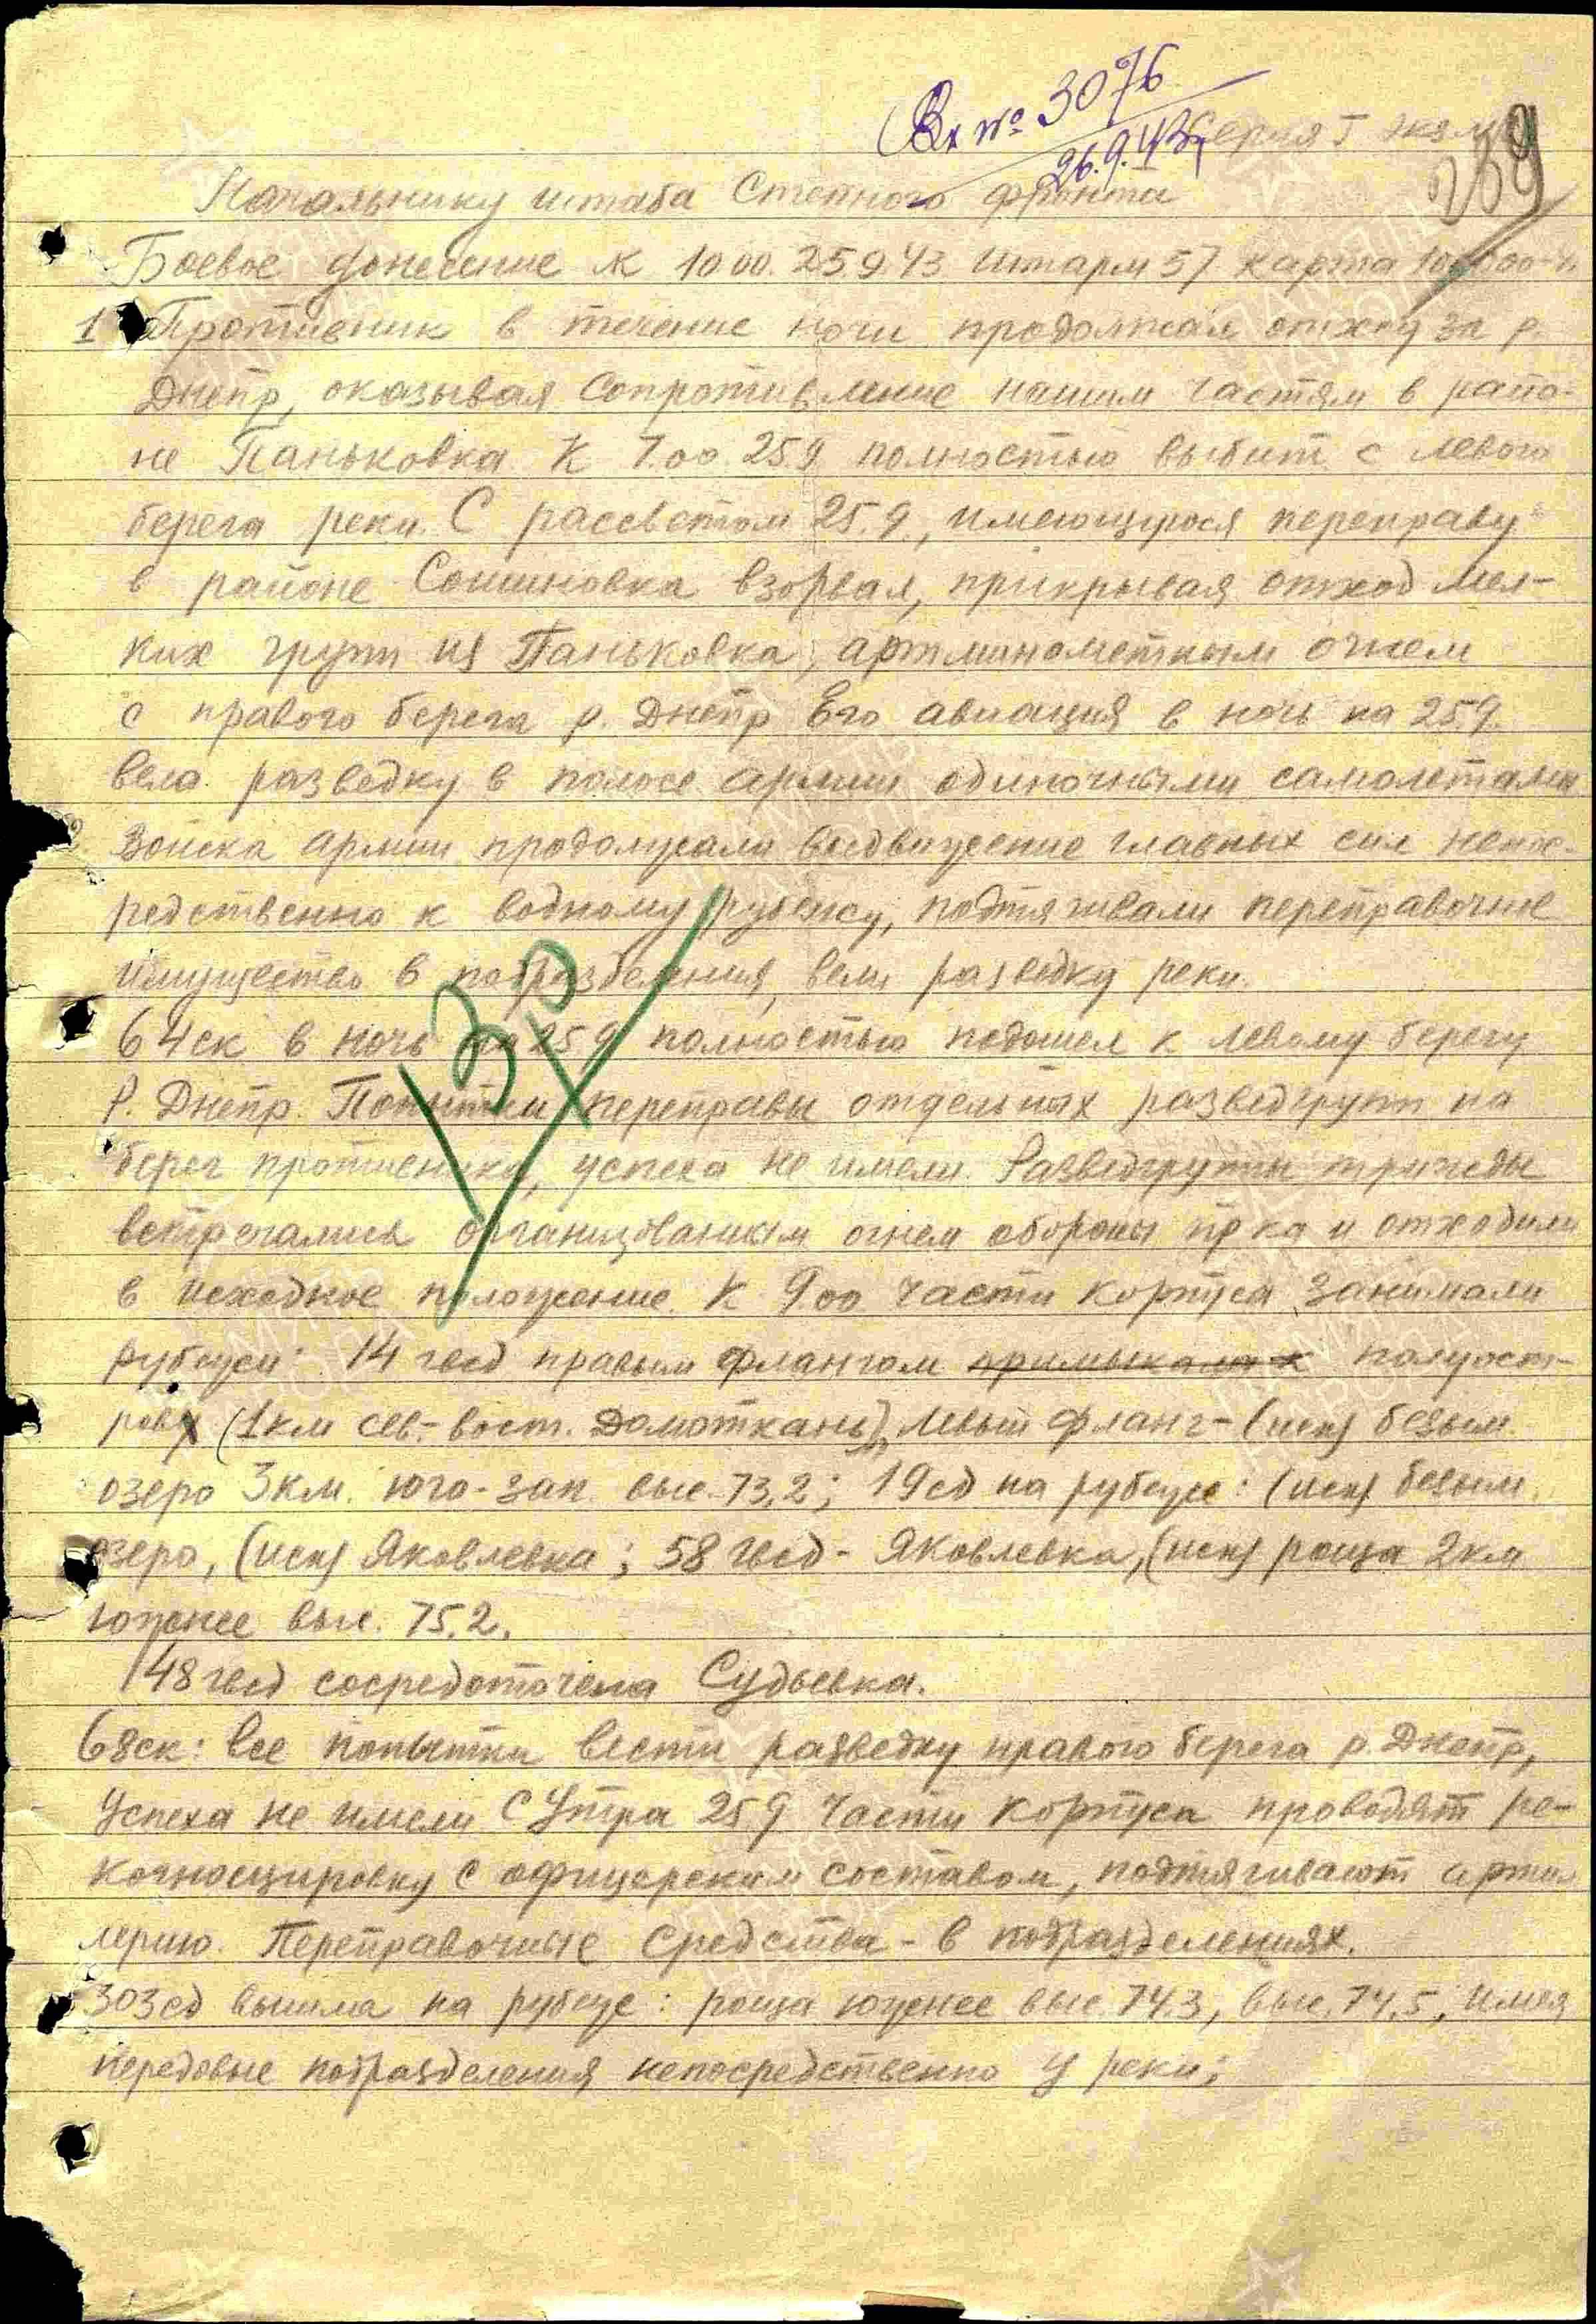 Вх № 3076
26.9.43г
Серия Г
239
Начальнику штаба Степного фронта
Боевое донесение к 10 00. 25.9.43 Штарм 57 карта 100000-
1 Противник в течение ночи продолжал отход за р.
Днепр, оказывая сопротивление нашим частям в райо-
не Паньковка. К 7.00. 25.9 полностью выбит с левого
берега реки. С рассветом 25.9., имеющуюся переправу
в районе Сошиновка взорвал, прикрывая отход мел-
ких групп из Паньковка, артминометным огнем
с правого берега р. Днепр Его авиация в ночь на 25.9.
вела разведку в полосе армии одиночными самолетами
Войска армии продолжали выдвижение главных сил непос-
редственно к водному рубежу, подтягивали переправочное
имущество в подразделения, вели разведку реки.
64ск в ночь на 25.9 полностью подошел к левому берегу
р. Днепр. Попытки переправы отдельных разведгрупп на
берег противника, успеха не имели. Разведгруппы трижды
встречались организованным огнем обороны пр-ка и отходили
в исходное положение. К 9.00 части корпуса занимали
рубежи: 14 гвсд правым флангом примыкала к полуост-
рову (1км сев.-вост. Домоткань), левый фланг-(иск) безым.
озеро 3км. юго-зап. выс. 73,2; 19сд на рубеже: (иск) безым.
озеро, (иск) Яковлевка; 58 гвсд - Яковлевка, (иск) роща 2км
южнее выс. 75.2.
48 гвсд сосредоточена Судьевка.
68ск: все попытки вести разведку правого берега р. Днепр,
успеха не имели С утра 25.9 части корпуса проводят ре-
когносцировку с офицерским составом, подтягивают артил-
лерию. Переправочные средства - в подразделениях.
303сд вышла на рубеж: роща южнее выс. 74.3, выс. 74.5, имея
передовые подразделения непосредственно у реки;
130